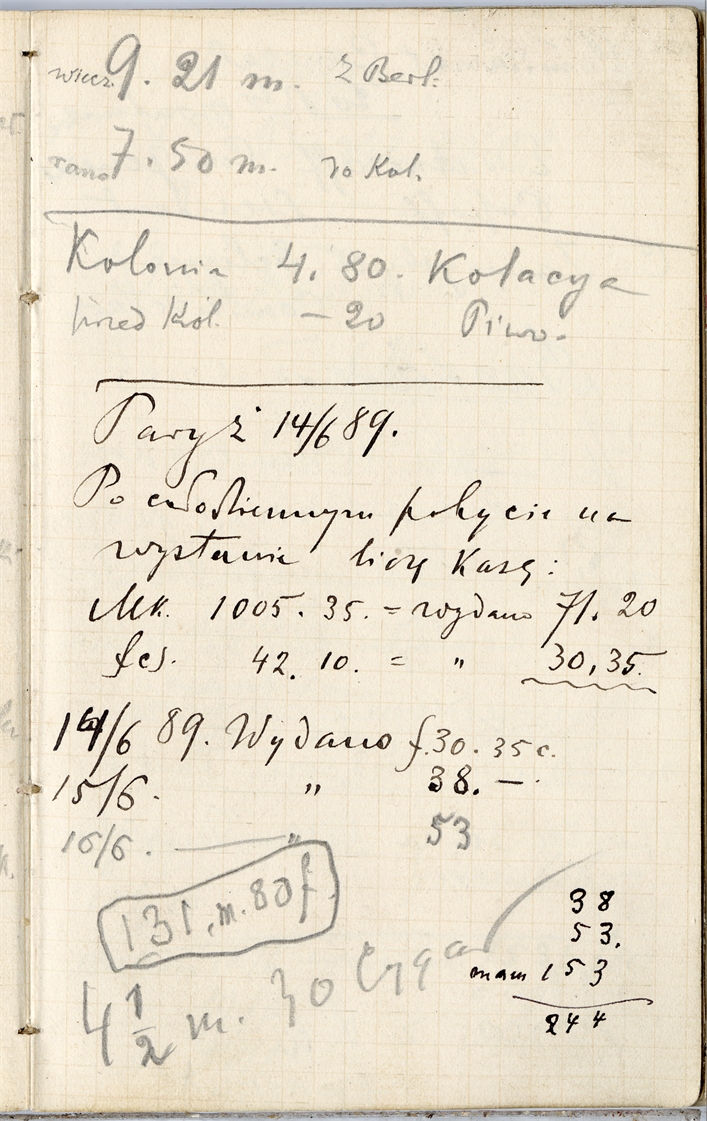 wiecz. 9. 21 m. z Berl.
rano 7. 50 m. do Kol.
Kolonia 4. 80. Kolacya
przed Kol. – 20 Piwo.
Paryż 14/6 89.
Po całodziennym pobycie na
wystawie liczę Kasę:
Mk. 1005. 35. = wydano 71. 20
fcs. 42. 10. = " 30,35.
14/6 89. Wydano f. 30. 35 c.
15/6. " 38. —
16/6. — " 53
131, m. 80 f.
38
53.
mam 153
244
4 1/2 m. 30 Cygar